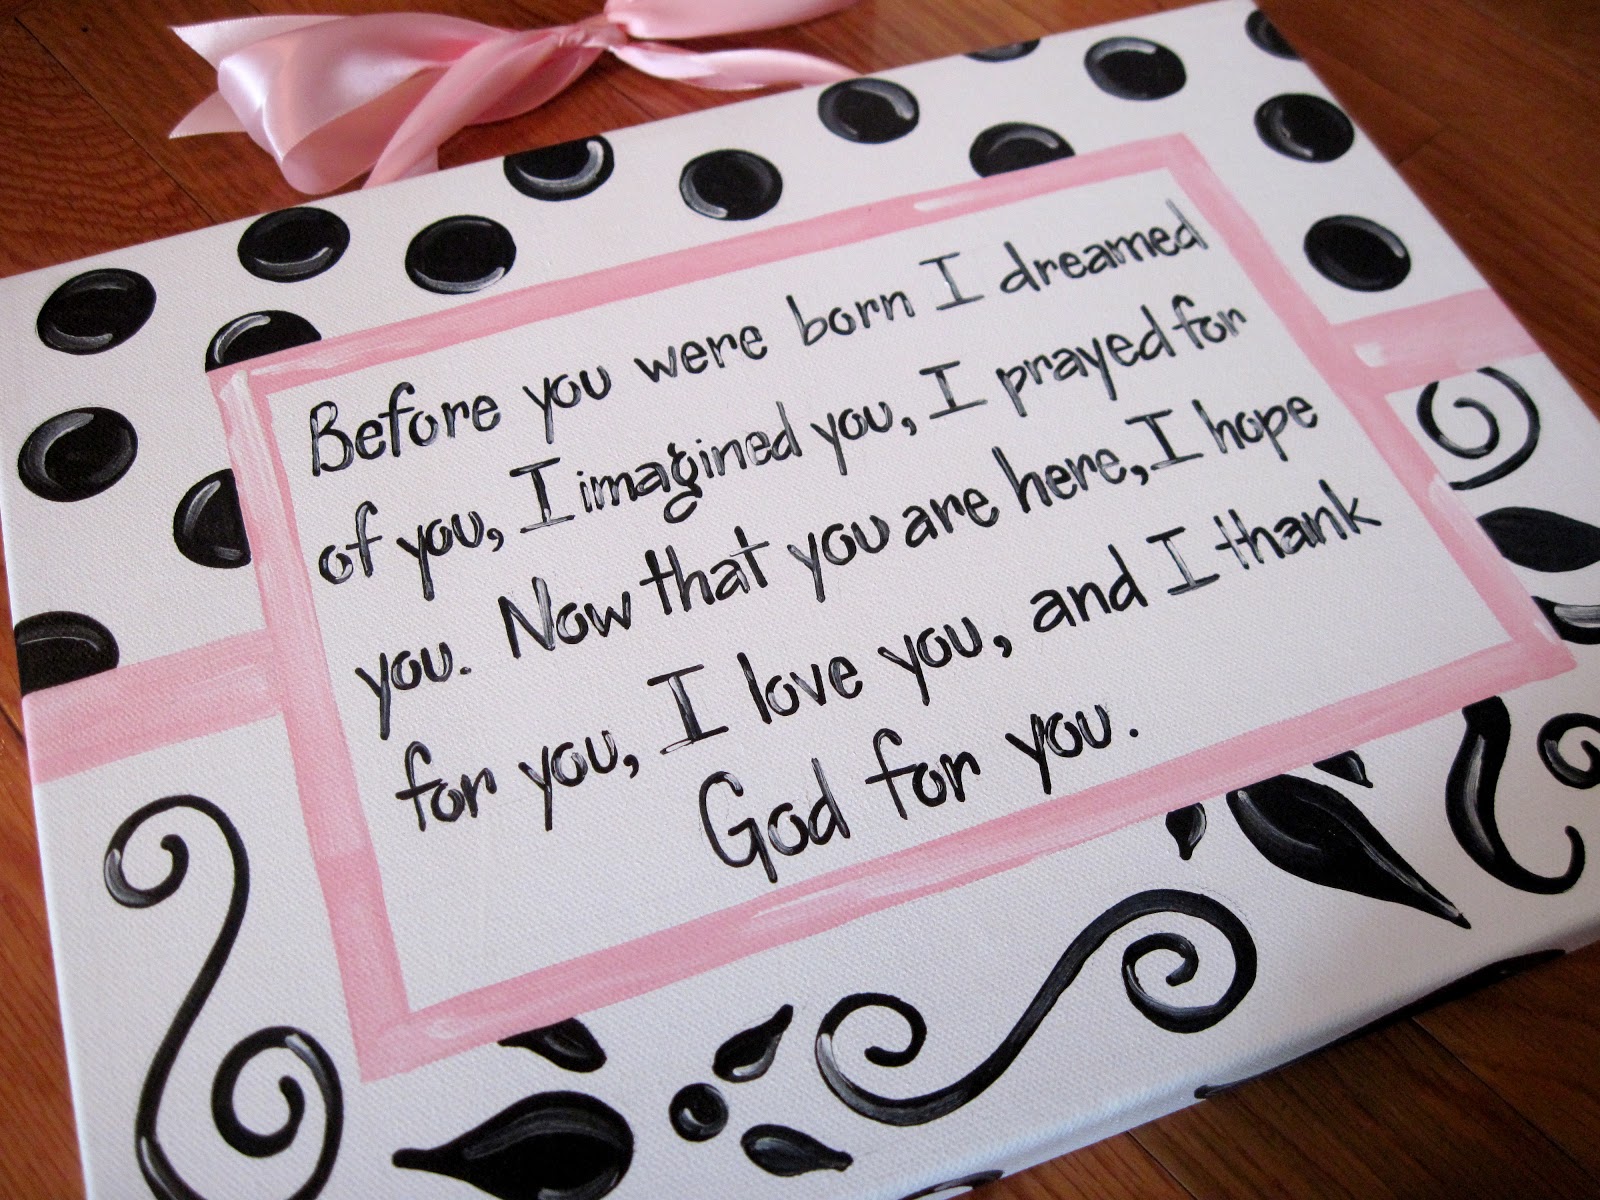 Before you were born I dreamed
of you, I imagined you, I prayed for
you. Now that you are here, I hope
for you, I love you, and I thank
God for you.